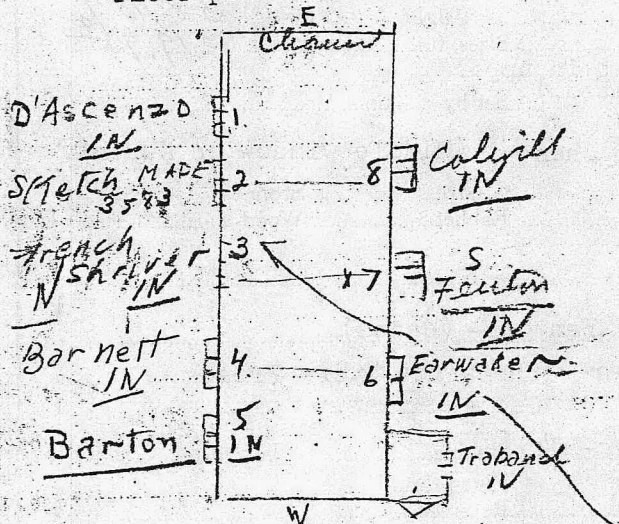 E
Chancel
D'Ascenzo
IN
1
Sketch MADE
3583
2
8
IN
French
Shriver
IN
IN
3
x7
S
Fenton
IN
Barnett
IN
4
6
Earwaker
IN
Barton
5
IN
Traband
IN
W